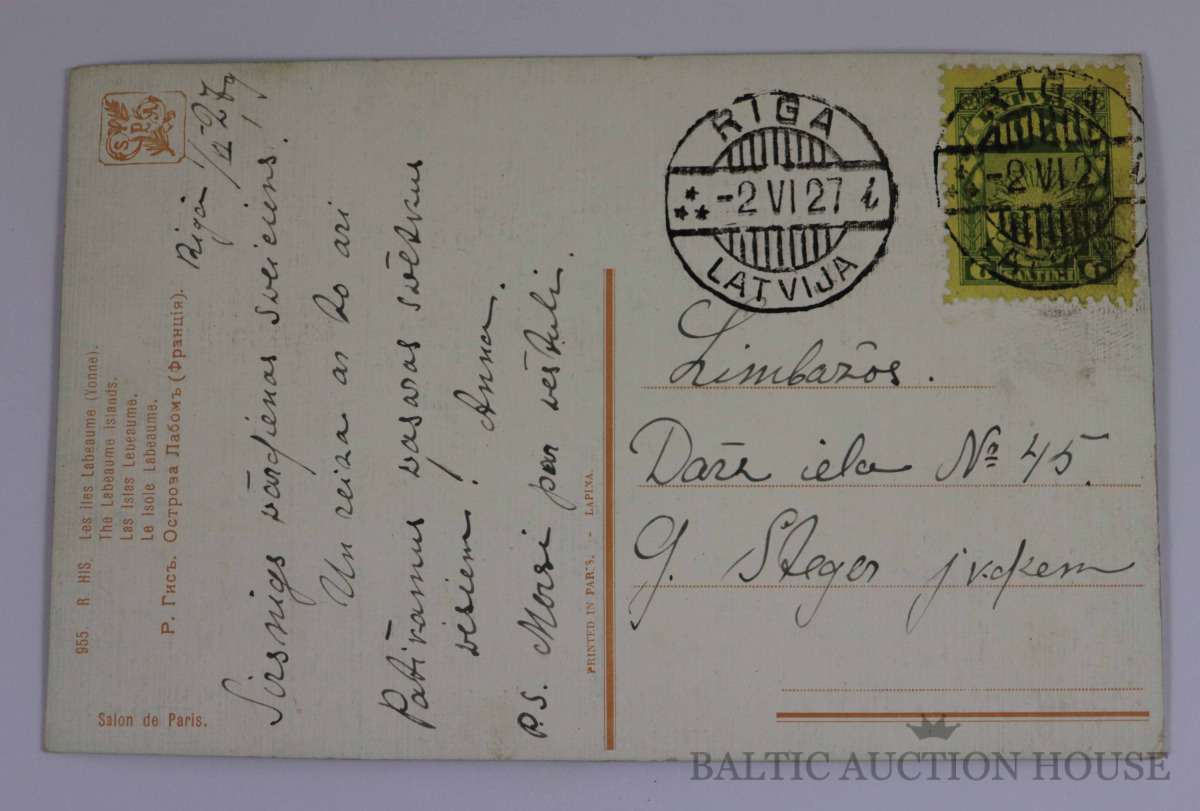 955. R. HIS. Les Iles Labeaume (Yonne).
The Labeaume Islands.
Las Islas Lebeaume.
Le Isole Labeaume.
Р. Гисъ. Острова Лабомъ (Франція).
Salon de Paris.
Rīgā
27g
Sirsnigs vārdienas sveiciens!
Un reizā ar to ari
Patīkamus vasaras svētkus
visiem! Anna.
P.S. Mersi par vēstuli.
PRINTED IN PARIS. - LAPINA.
RIGA
-2 VI 27
LATVIJA
RIGA
-2 VI 27
Limbažos.
Dārz ielā № 45.
G. Steger
BALTIC AUCTION HOUSE